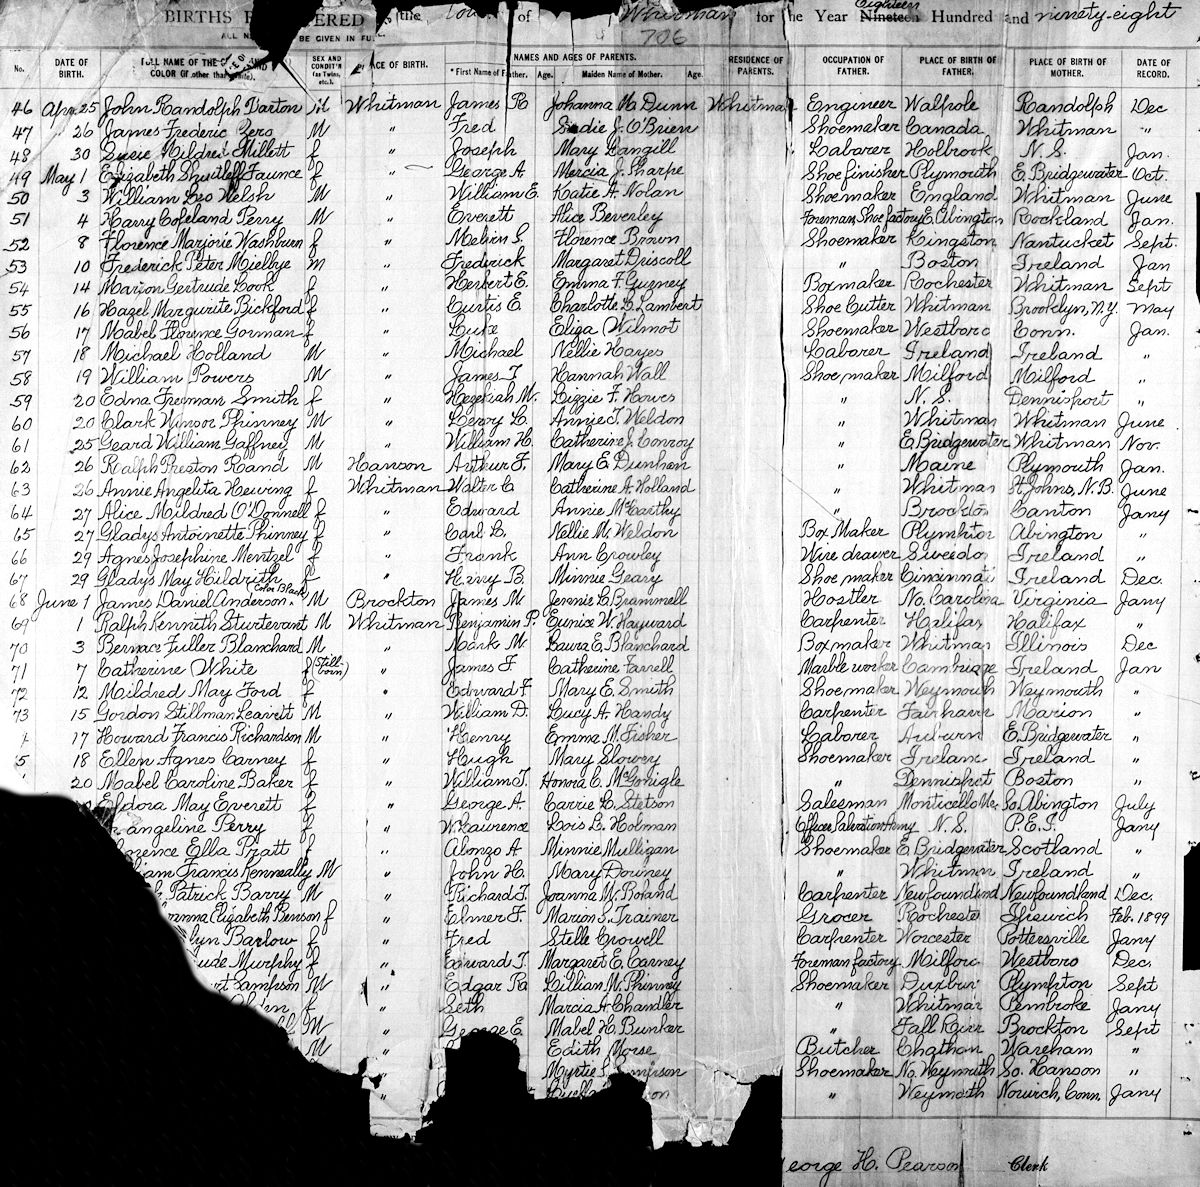 BIRTHS REGISTERED in the Town of Whitman for the Year Eighteen Nineteen Hundred and ninety-eight
706
ALL NAMES TO BE GIVEN IN FULL.
No. DATE OF BIRTH. FULL NAME OF THE CHILD AND COLOR (if other than white). SEX AND CONDIT'N (as Twins, etc.). PLACE OF BIRTH. NAMES AND AGES OF PARENTS. *First Name of Father. Age. Maiden Name of Mother. Age. RESIDENCE OF PARENTS. OCCUPATION OF FATHER. PLACE OF BIRTH OF FATHER. PLACE OF BIRTH OF MOTHER. DATE OF RECORD.
46 Apr. 25 John Randolph Darton M Whitman James R Johanna M. Dunn Whitman Engineer Walpole Randolph Dec
47 26 James Frederic M " Fred Sadie J. O'Brien Shoemaker Canada Whitman "
48 30 Susie Mildred Millett f " Joseph Mary Langill Laborer Holbrook N. S. Jan.
49 May 1 Elizabeth Shurtleff Faunce f " George A Mercia J. Sharpe Shoe finisher Plymouth E. Bridgewater Oct.
50 3 William Leo Welsh M " William E. Katie A. Nolan Shoemaker England Whitman June
51 4 Harry Copeland Perry M " Everett Alice Beverley Foreman Shoe factory E. Abington Rockland Jan.
52 8 Florence Marjorie Washburn f " Melvin S. Florence Brown Shoemaker Kingston Nantucket Sept.
53 10 Frederick Peter Miellye m " Frederick Margaret Driscoll " Boston Ireland Jan
54 14 Marion Gertrude Cook f " Herbert E. Emma F. Gurney Boxmaker Rochester Whitman Sept
55 16 Hazel Margurite Bickford f " Curtis E. Charlotte D. Lambert Shoe Cutter Whitman Brooklyn, N.Y. May
56 17 Mabel Florence Gorman f " Luke Eliza Wilmot Shoemaker Westboro Conn. Jan.
57 18 Michael Holland M " Michael Nellie Hayes Laborer Ireland Ireland "
58 19 William Powers M " James T. Hannah Wall Shoe maker Milford Milford "
59 20 Edna Freeman Smith f " Hezekiah M. Lizzie F. Howes " N. S. Dennisport "
60 20 Clark Winsor Phinney M " Leroy L. Annie T. Weldon " Whitman Whitman June
61 25 Geard William Gaffney M " William H. Catherine J. Conroy " E. Bridgewater Whitman Nov.
62 26 Ralph Preston Rand M Hanson Arthur F. Mary E. Dunham " Maine Plymouth Jan.
63 26 Annie Angelita Hewing f Whitman Walter C Catherine A. Holland " Whitman St Johns, N.B. June
64 27 Alice Mildred O'Donnell f " Edward Annie McCarthy " Brockton Canton Jany
65 27 Gladys Antoinette Phinney f " Carl L. Nellie M. Weldon Box Maker Plymton Abington "
66 29 Agnes Josephine Mentzel f " Frank Ann Crowley Wire drawer Sweeden Ireland "
67 29 Gladys May Hildrith f " Harry B. Minnie Geary Shoe maker Cincinnati Ireland Dec.
68 June 1 James Daniel Anderson. (Color Black) M Brockton James M Jennie L. Brammell Hostler No. Carolina Virginia Jany
69 1 Ralph Kenneth Sturtevant M Whitman Benjamin P. Eunice W. Hayward Carpenter Halifax Halifax "
70 3 Bernace Fuller Blanchard M " Mark M Laura E. Blanchard Boxmaker Whitman Illinois Dec
71 7 Catherine White f (Still-born) " James F Catherine Farrell Marble worker Cambridge Ireland Jan
72 12 Mildred May Ford f " Edward F. Mary E. Smith Shoemaker Weymouth Weymouth "
73 15 Gordon Stillman Leavett M " William D. Lucy A. Handy Carpenter Fairhaven Marion "
4 17 Howard Francis Richardson M " Henry Emma M. Fisher Laborer Auburn E. Bridgewater "
5 18 Ellen Agnes Carney f " Hugh Mary Slowey Shoemaker Ireland Ireland "
20 Mabel Caroline Baker f " William T. Honora C. McGonigle " Dennisport Boston "
Efdora May Everett f " George A. Carrie H. Stetson Salesman Monticello Me. So. Abington July
angeline Perry f " W. Lawrence Lois L. Holman Officer Salvation Army N. S. P.E.I. Jany
lorence Ella Pratt f " Alonzo A Minnie Mulligan Shoemaker E. Bridgewater Scotland "
liam Francis Kenneally M " John H. Mary Downey " Whitman Ireland "
k Patrick Barry M " Richard T. Joanna M. Boland Carpenter Newfoundland Newfoundland Dec.
anna Elizabeth Benson f " Elmer F. Marion S. Trainer Grocer Rochester Ipswich Feb. 1899
lyn Barlow f " Fred Stelle Crowell Carpenter Worcester Pottersville Jany
ude Murphy f " Edward T. Margaret E. Carney Foreman factory Milford Westboro Dec.
rt Sampson M " Edgar Ra Lillian M. Phinney Shoemaker Duxbury Plympton Sept
f " Seth Marcia A Chandler " Whitman Pembroke Jany
M " George E. Mabel H. Bunker " Fall River Brockton Sept
M " Edith Morse Butcher Chatham Wareham "
" Myrtie S. Sampson Shoemaker No. Weymouth So. Hanson "
" " Weymouth Norwich, Conn. Jany
eorge H. Pearson Clerk